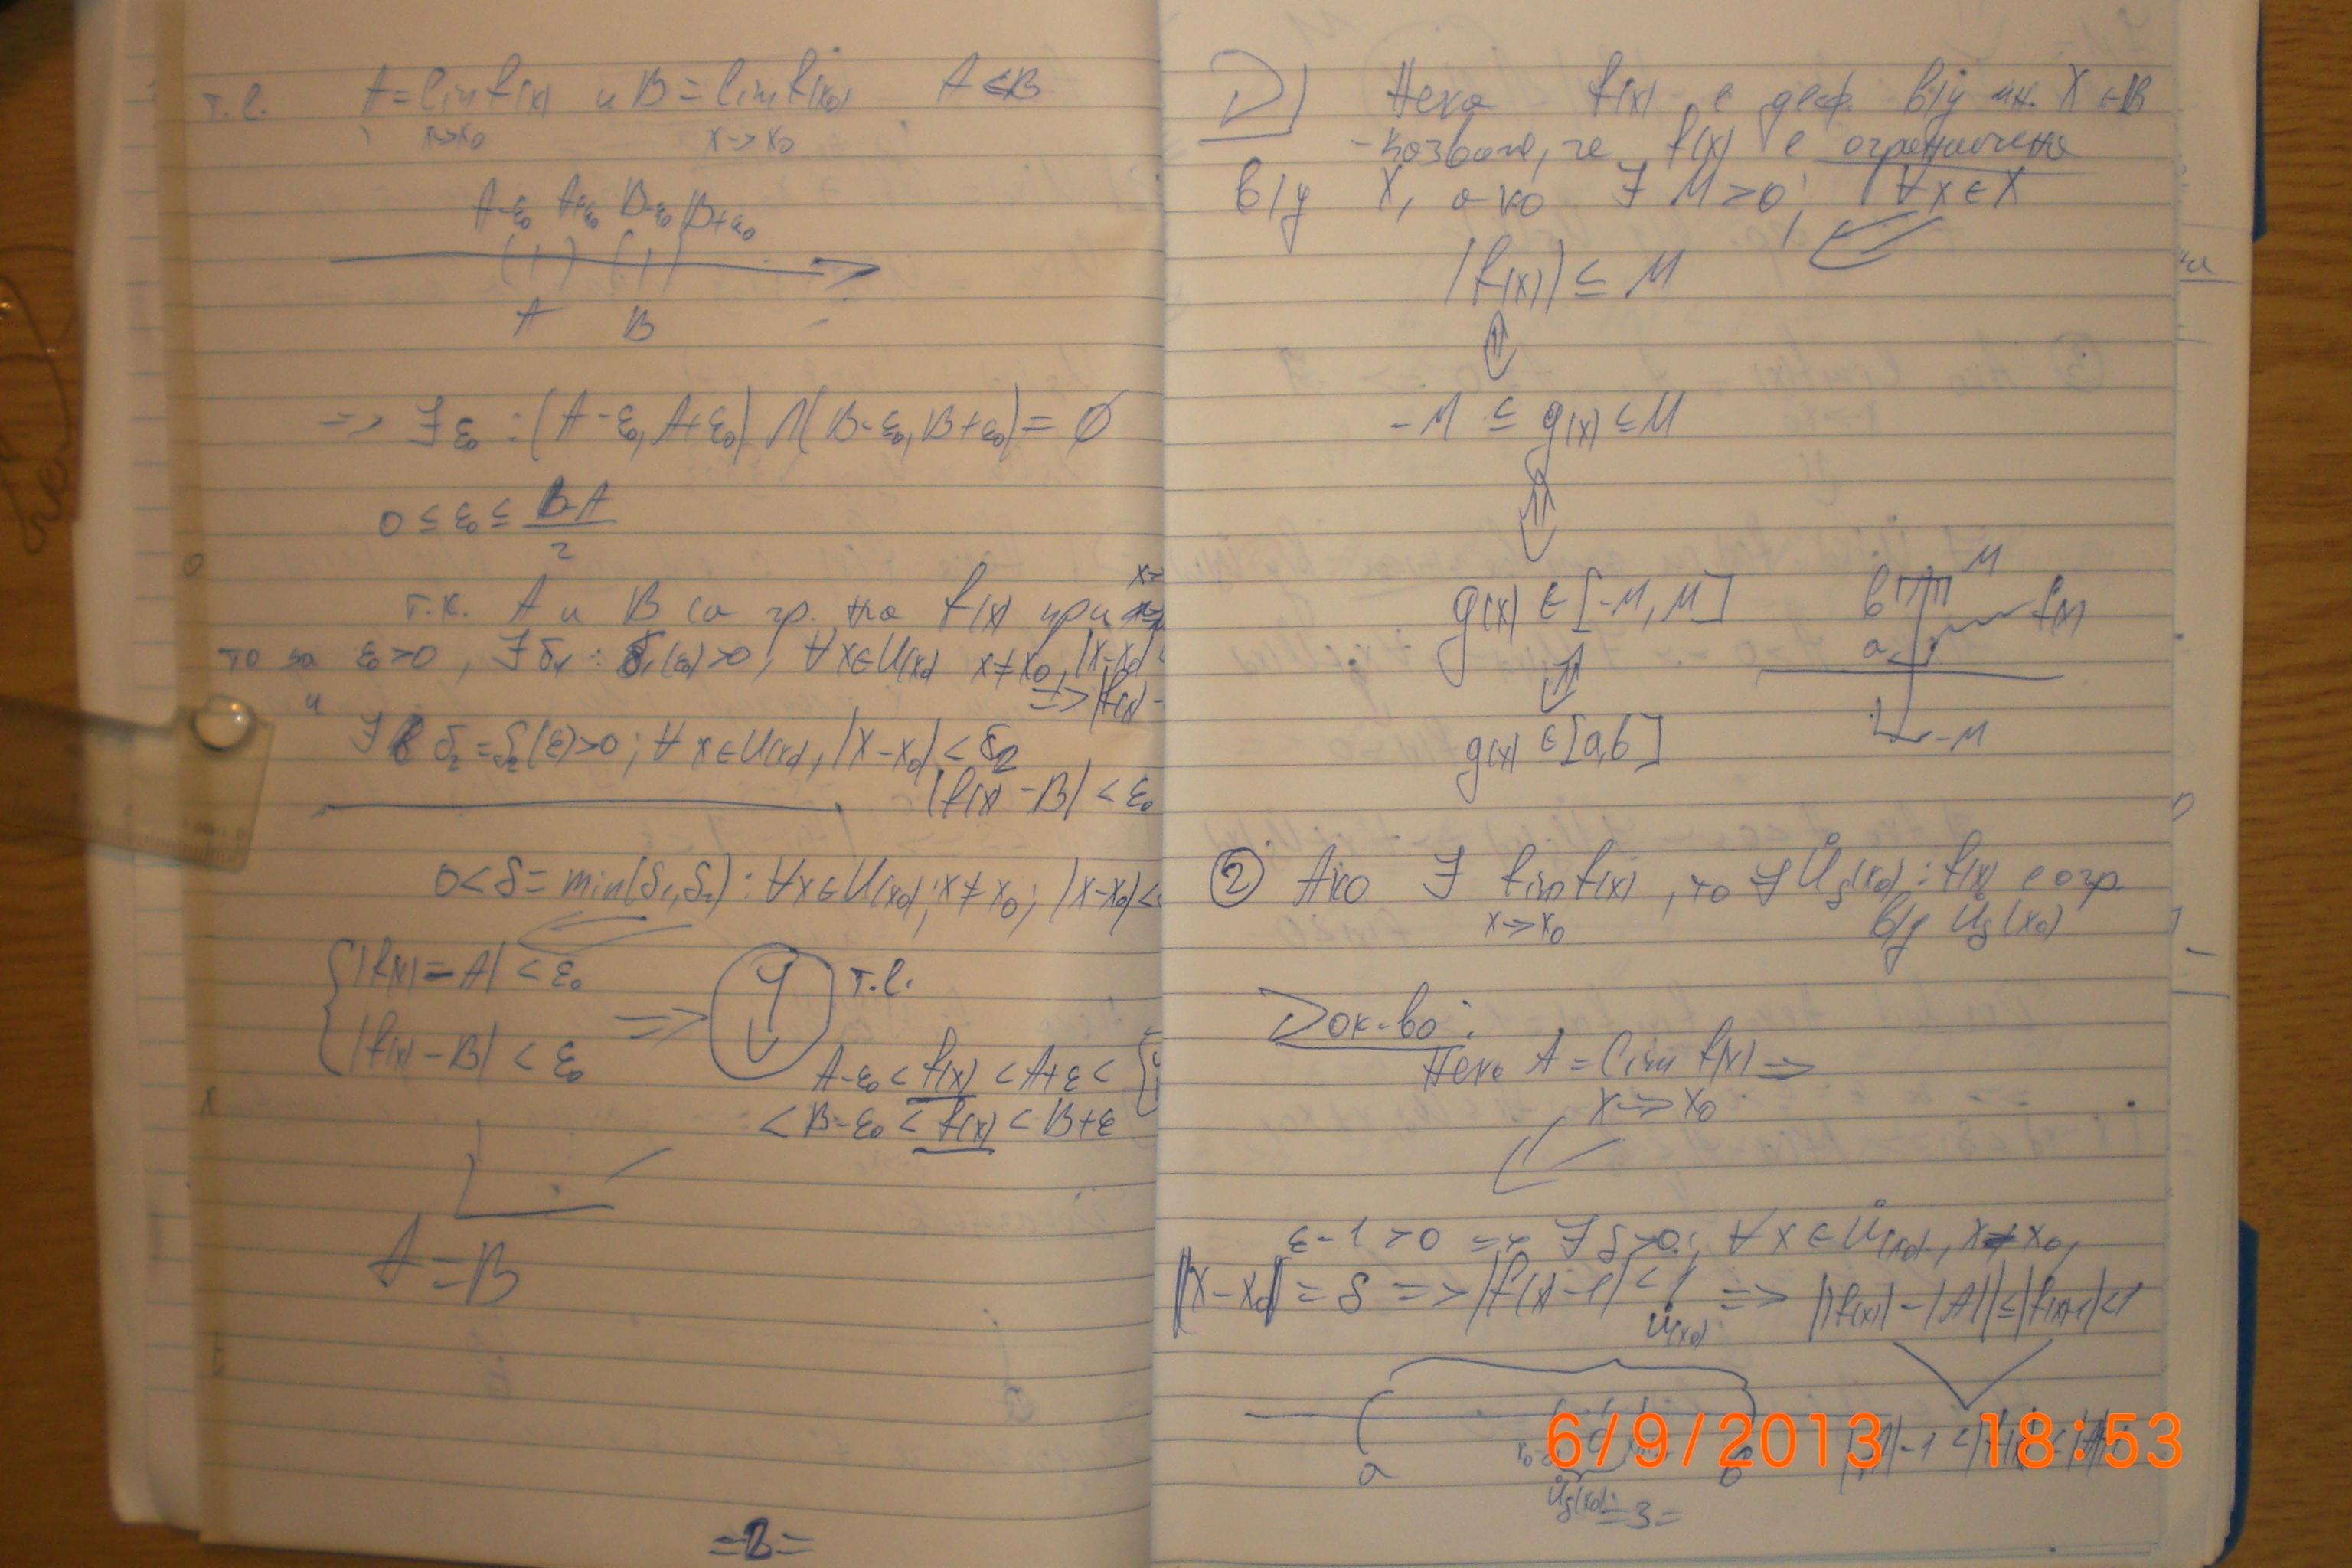 т.е. A = lim f(x) и B = lim f(x₀) A < B
x→x₀ x→x₀
A-ε₀ A+ε₀ B-ε₀ B+ε₀
A B
=> ∃ ε₀ : (A-ε₀, A+ε₀) ∩ (B-ε₀, B+ε₀) = ∅
0 ≤ ε₀ ≤ (B-A)/2
т.к. A и B са гр. на f(x) при
то за ε₀>0, ∃ δ₁ : δ₁(ε₀)>0; ∀x∈U(x₀) x≠x₀, |x-x₀| <
=> |f(x) -
и
∃ δ₂ = δ₂(ε)>0; ∀ x∈U(x₀), |x-x₀| < δ₂
|f(x) - B| < ε₀
0 < δ = min(δ₁, δ₂) : ∀x∈U(x₀); x≠x₀; |x-x₀| <
|f(x) - A| < ε₀
|f(x) - B| < ε₀ => Ч т.е.
A-ε₀ < f(x) < A+ε <
< B-ε₀ < f(x) < B+ε
A = B
=2=
D) Нека f(x) е деф. в/у мн. X
-казваме, че f(x) е ограничена
в/у X, ако ∃ M>0; ∀x∈X
|f(x)| ≤ M
⇕
-M ≤ g(x) ≤ M
⇕
g(x) ∈ [-M, M]
⇕
g(x) ∈ [a,b]
M
b
f(x)
a
-M
② Ако ∃ lim f(x), то ∃ Ů_δ(x₀) : f(x) е огр.
x→x₀ в/у Ů_δ(x₀)
Док-во:
Нека A = lim f(x) =>
x→x₀
ε-1 >0 => ∃ δ>0; ∀x∈Ů(x₀), x≠x₀,
|x-x₀| = δ => |f(x)-l| < 1 => ||f(x)| - |A|| ≤ |f(x)+1| < 1
Ů(x₀)
a b
Ů_δ(x₀)
=3=
6/9/2013 18:53